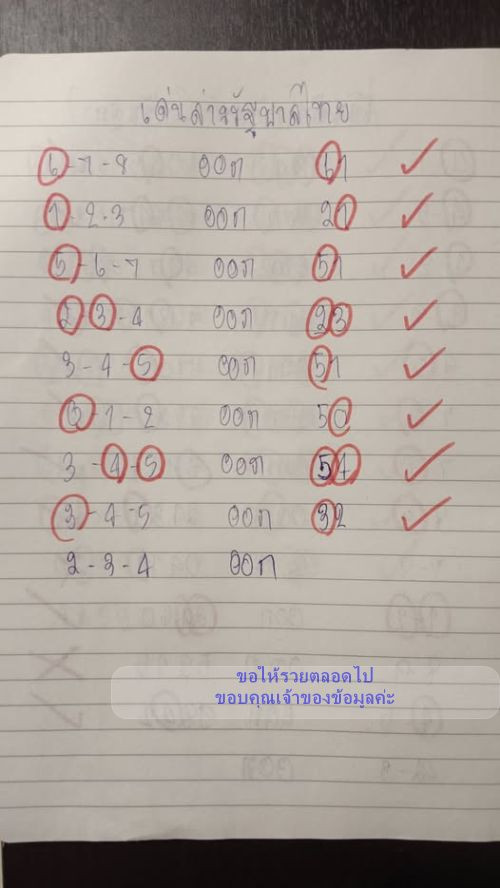 เด่นล่างรัฐบาลไทย
6-7-8 ออก 61
1-2-3 ออก 21
5-6-7 ออก 51
2-3-4 ออก 23
3-4-5 ออก 51
0-1-2 ออก 50
3-4-5 ออก 54
3-4-5 ออก 32
2-3-4 ออก
ขอให้รวยตลอดไป
ขอบคุณเจ้าของข้อมูลค่ะ